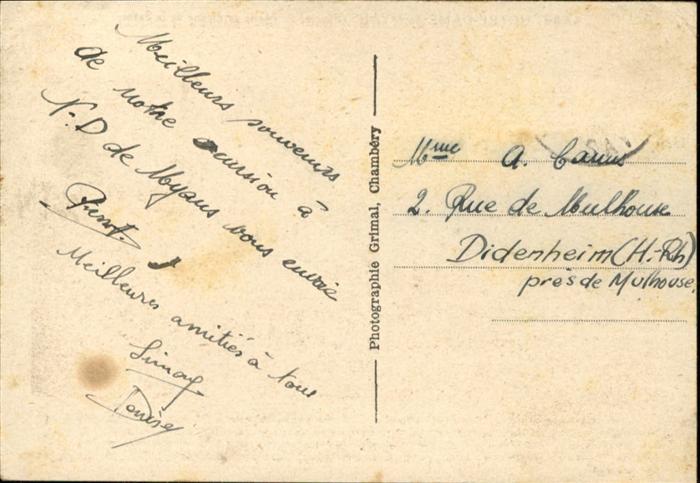 Meilleurs souvenirs
de notre excursion à
N.D de Myans vous envoie
Meilleures amitiés à tous
Simon
Denise
Photographie Grimal, Chambéry
Mme A. Camus
2. Rue de Mulhouse
Didenheim (H.-Rh)
près de Mulhouse.